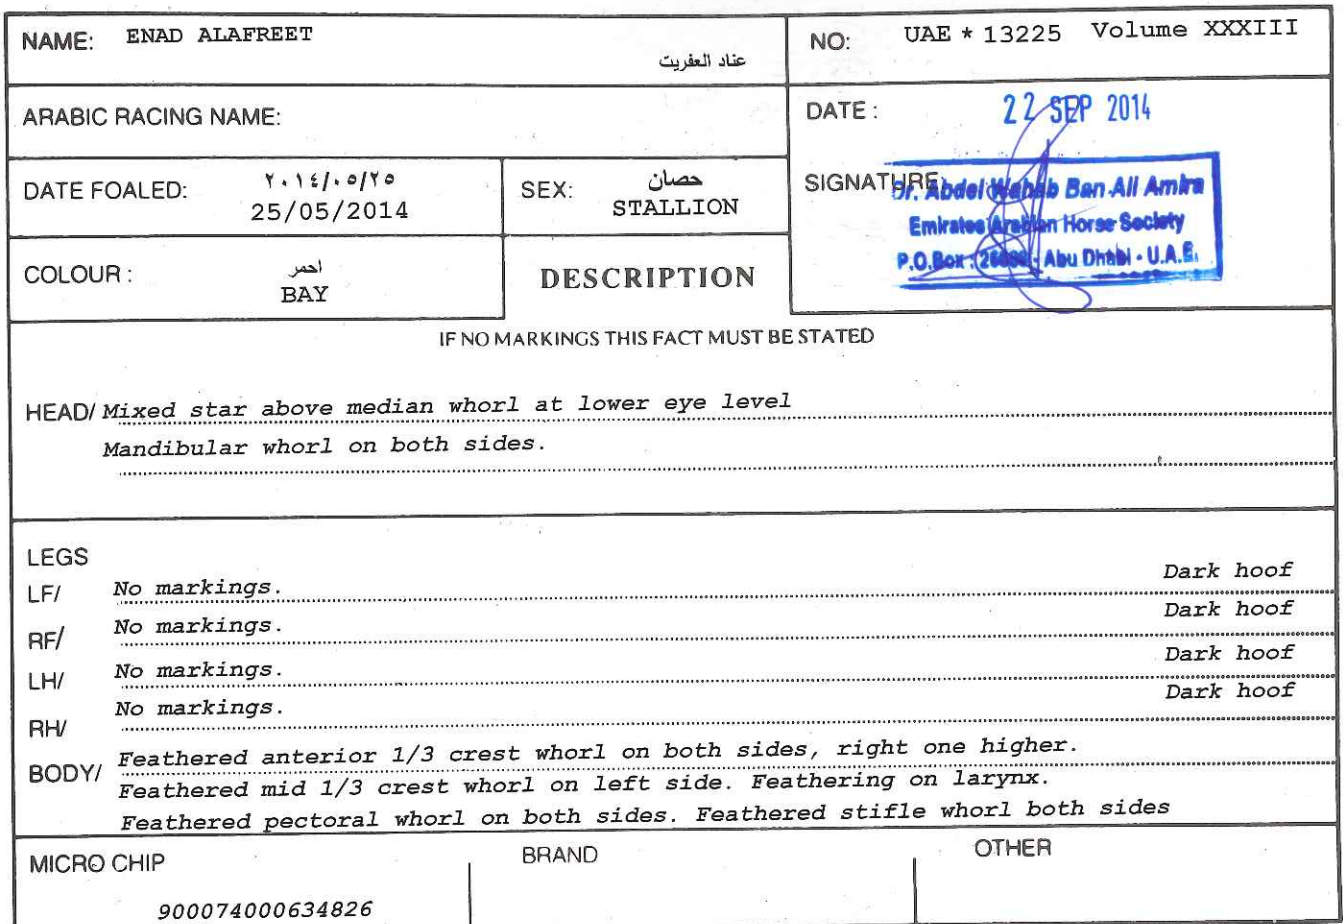 NAME: ENAD ALAFREET
عناد العفريت
NO: UAE * 13225 Volume XXXIII
ARABIC RACING NAME:
DATE : 22 SEP 2014
DATE FOALED: ٢٠١٤/٠٥/٢٥
25/05/2014
SEX: حصان
STALLION
SIGNATURE:
Dr. Abdel Wahab Ban Ali Amira
Emirates Arabian Horse Society
P.O.Box : - Abu Dhabi - U.A.E.
COLOUR : احمر
BAY
DESCRIPTION
IF NO MARKINGS THIS FACT MUST BE STATED
HEAD/ Mixed star above median whorl at lower eye level
Mandibular whorl on both sides.
LEGS
LF/ No markings. Dark hoof
RF/ No markings. Dark hoof
LH/ No markings. Dark hoof
RH/ No markings. Dark hoof
BODY/ Feathered anterior 1/3 crest whorl on both sides, right one higher.
Feathered mid 1/3 crest whorl on left side. Feathering on larynx.
Feathered pectoral whorl on both sides. Feathered stifle whorl both sides
MICRO CHIP
BRAND
OTHER
900074000634826